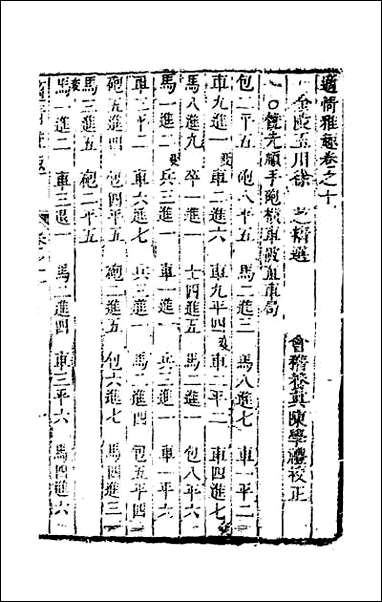 適情雅趣卷之十
金陵玉川徐 芝精選
會稽養真陳學禮校正
○饒先順手砲橫車破直車局
包二平五 砲八平五 馬二進三 馬八進七 車一平二
車九進一 車二進六 車九平四 車二平二 車四進七
馬八進九 卒一進一 士四進五 馬二進一 包八平六
馬一進二 兵三進一 車一進一 兵三進一 車一平六
車二平二 車六進七 兵三進一 馬二進四 包五平四
砲五進四 包四平五 砲二進五 包六進七 馬四進三
馬三進五 砲二平五
馬一進二 車三退一 馬二進四 車三平六 馬四進六